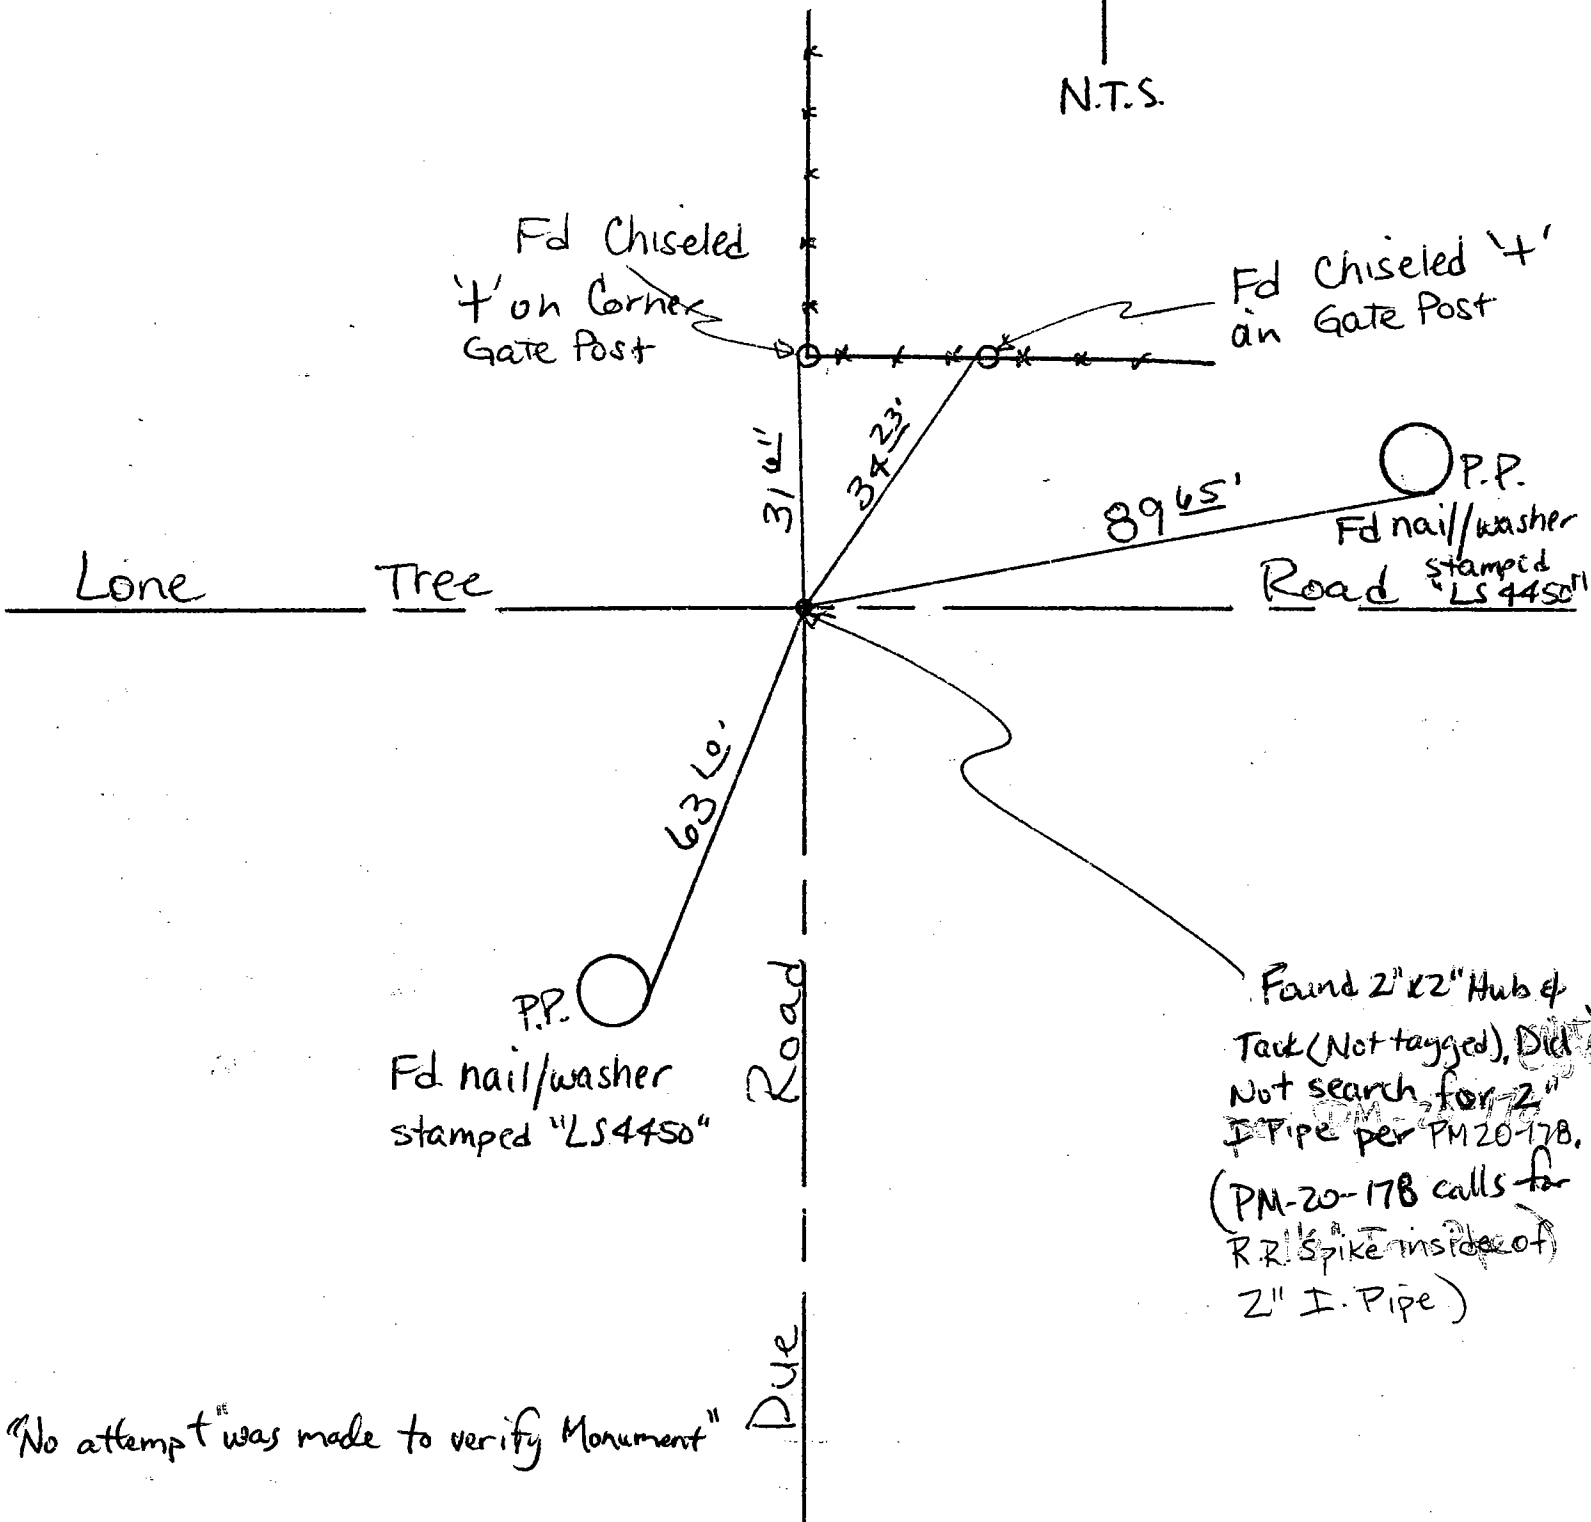 N.T.S.
Fd Chiseled
'+' on Corner
Gate Post
Fd Chiseled '+'
on Gate Post
34 23'
89 65'
P.P.
Fd nail/washer
stamped
"LS 4450"
Lone Tree Road
P.P.
Fd nail/washer
stamped "LS4450"
Due Road
Found 2"x2" Hub &
Tack (Not tagged), Did
Not search for 2"
I Pipe per PM 20-178.
(PM-20-178 calls for
R.R. Spike inside of
2" I. Pipe)
"No attempt" was made to verify Monument"